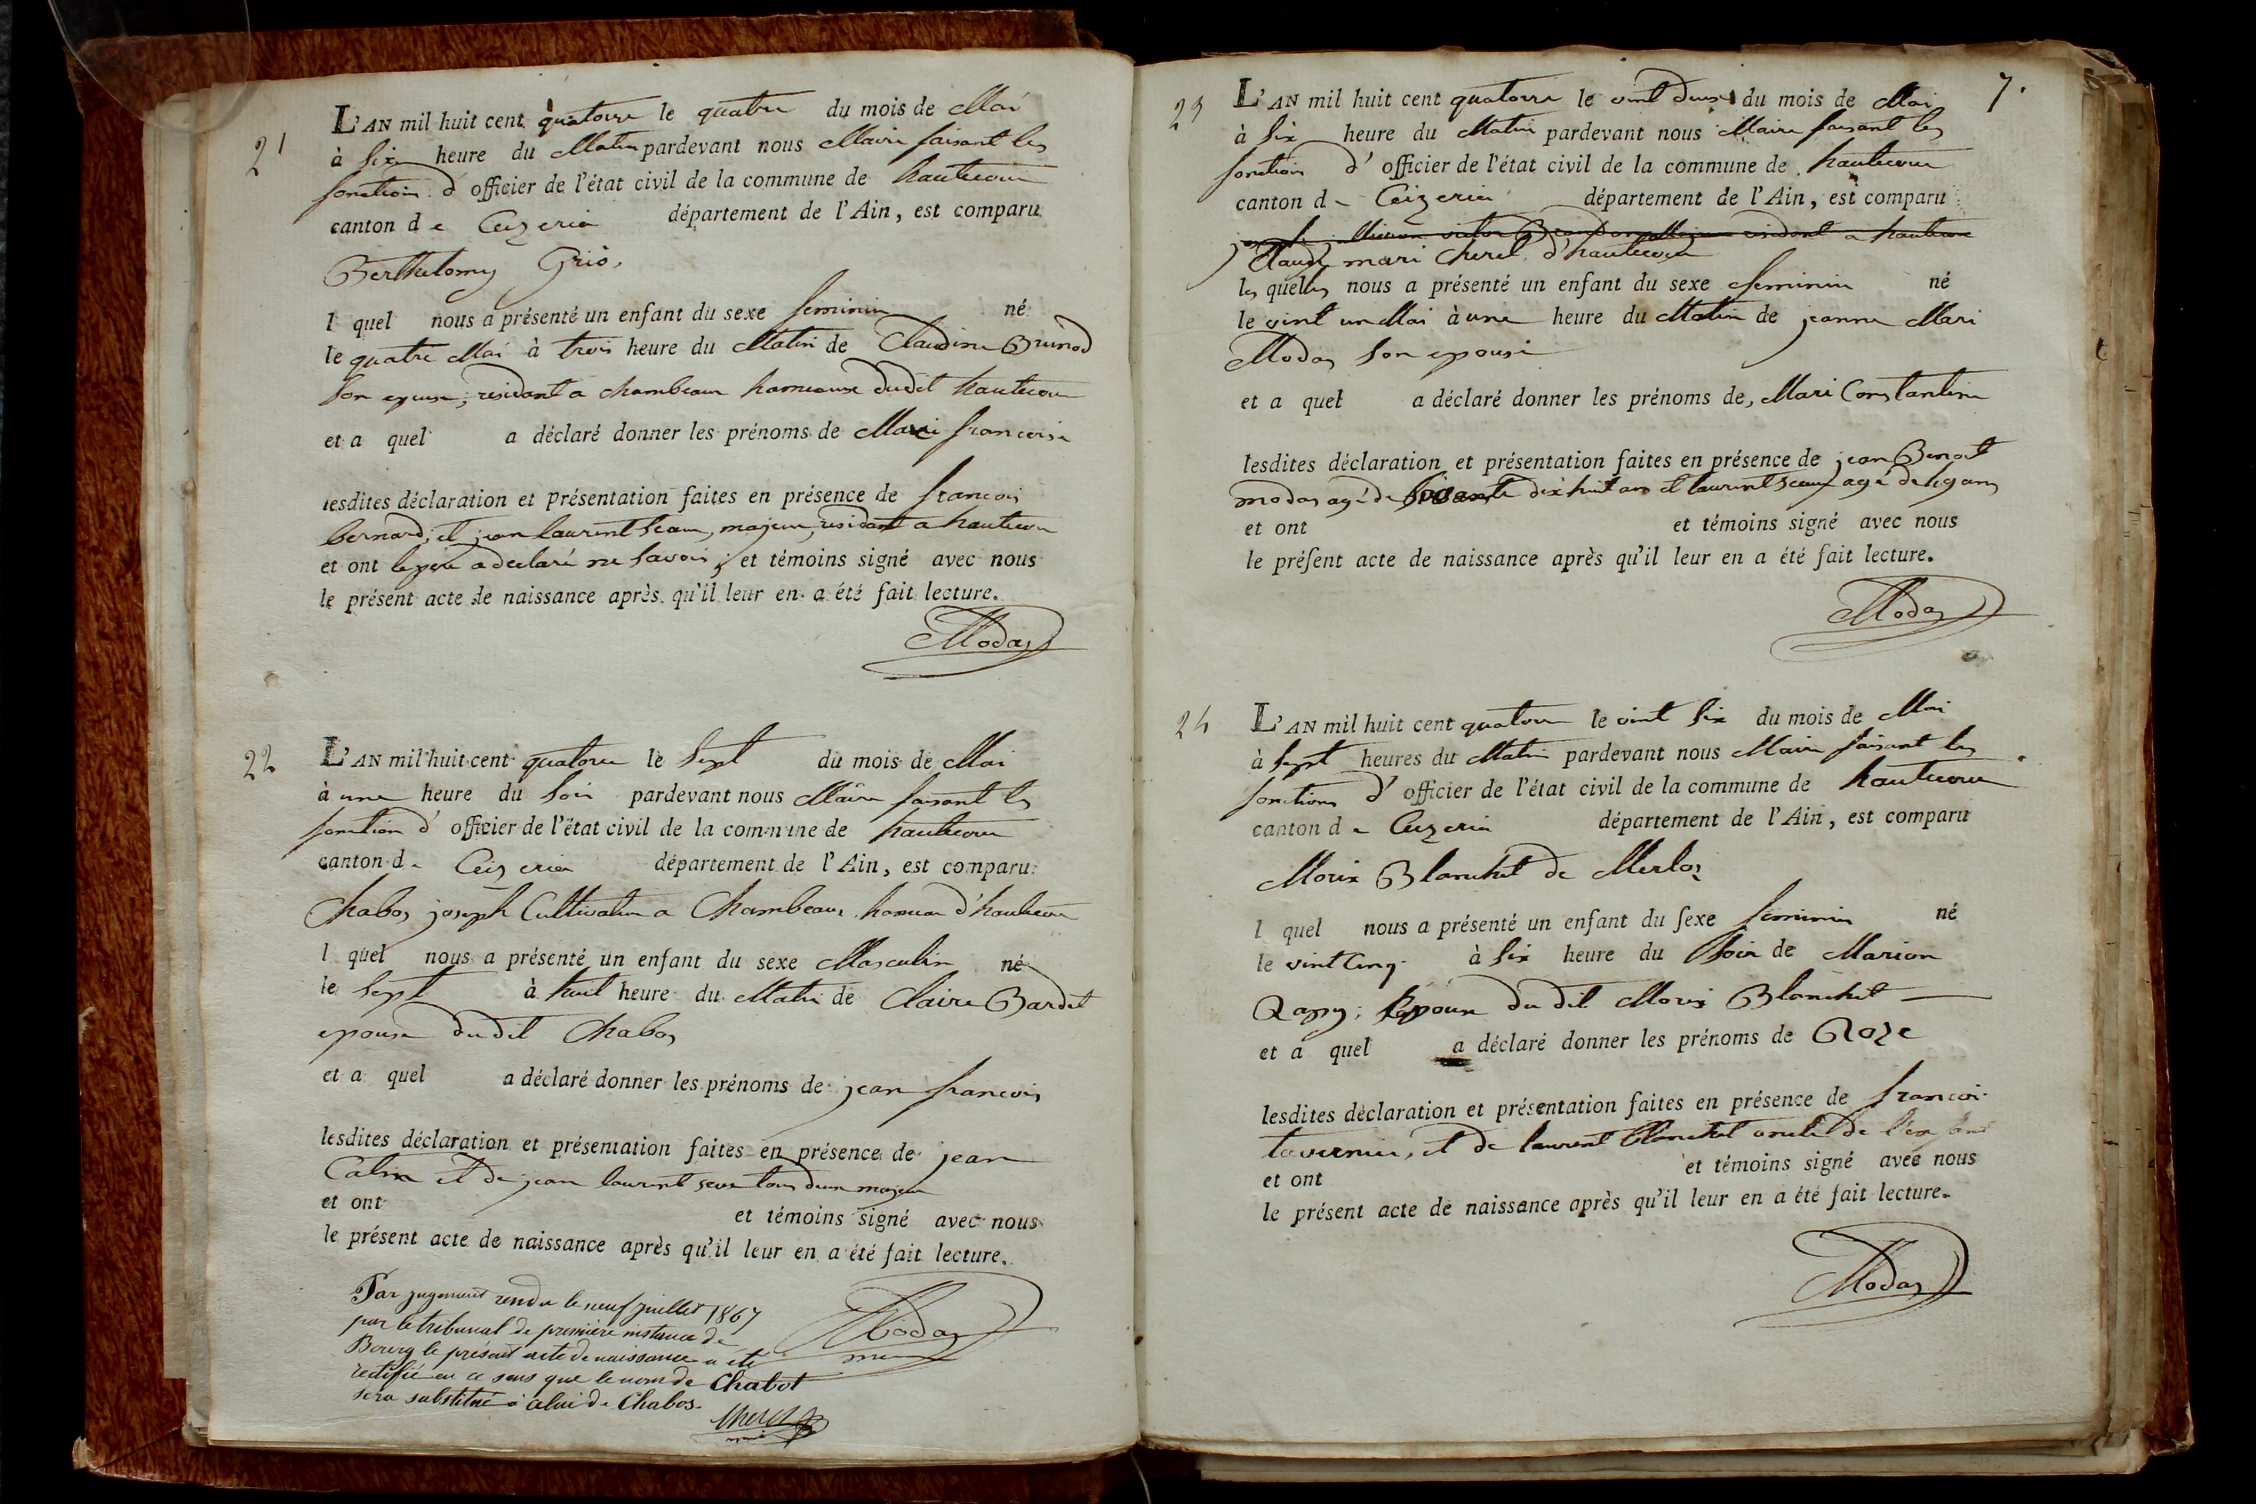 21
L'AN mil huit cent quatorze le quatre du mois de Mai
à six heure du Matin pardevant nous Maire faisant les
fonction d'officier de l'état civil de la commune de hautecour
canton de Ceizeria département de l'Ain, est comparu
Berthelomy Grio,
l quel nous a présenté un enfant du sexe feminin né
le quatre Mai à trois heure du Matin de Claudine Brunod
son epouse; residant a chambeau hameaux dudit hautecour
et a quel a déclaré donner les prénoms de Marie francoise
lesdites déclaration et présentation faites en présence de francois
bernard, et jean laurent seau, majeur, residant a hautecour
et ont le père a declaré ne savoir, et témoins signé avec nous
le présent acte de naissance après qu'il leur en a été fait lecture.
Modas
22
L'AN mil huit cent quatorze le sept du mois de Mai
à une heure du soir pardevant nous Maire faisant les
fonction d'officier de l'état civil de la commune de hautecour
canton de Ceizeria département de l'Ain, est comparu
Chabos joseph Cultivateur a Chambeau hameau d'hautecour
l quel nous a présenté un enfant du sexe Masculin né
le sept à huit heure du Matin de Claire Bardet
epouse dudit Chabos
et a quel a déclaré donner les prénoms de jean francois
lesdites déclaration et présentation faites en présence de jean
et de jean laurent tous deux majeur
et ont et témoins signé avec nous
le présent acte de naissance après qu'il leur en a été fait lecture.
Modas
Par jugement rendu le neuf juillet 1867
par le tribunal de première instance de
Bourg le présent acte de naissance a été
rectifié en ce sens que le nom de Chabot
sera substitué à celui de Chabos.
7.
23
L'AN mil huit cent quatorze le vint deux du mois de Mai
à six heure du Matin pardevant nous Maire faisant les
fonction d'officier de l'état civil de la commune de hautecour
canton de Ceizeria département de l'Ain, est comparu
residant a hautecour
Claude mari Cherel d'hautecour
les quelles nous a présenté un enfant du sexe feminin né
le vint un Mai à une heure du Matin de jeanne Mari
Modas son epouse
et a quel a déclaré donner les prénoms de, Mari Constantine
lesdites déclaration et présentation faites en présence de jean Benoit
modas agé de dix huit ans et laurent seau agé de ans
et ont et témoins signé avec nous
le présent acte de naissance après qu'il leur en a été fait lecture.
Modas
24
L'AN mil huit cent quatorze le vint six du mois de Mai
à sept heures du Matin pardevant nous Maire faisant les
fonctions d'officier de l'état civil de la commune de hautecour
canton de Ceizeria département de l'Ain, est comparu
Morix Blanchet de Merlos
l quel nous a présenté un enfant du sexe feminin né
le vint Cinq à six heure du soir de Marion
Rapy; epouse du dit Morix Blanchet
et a quel a déclaré donner les prénoms de Roze
lesdites déclaration et présentation faites en présence de francois
tavernier, et de laurent Blanchet oncle de l'enfant
et ont et témoins signé avec nous
le présent acte de naissance après qu'il leur en a été fait lecture.
Modas